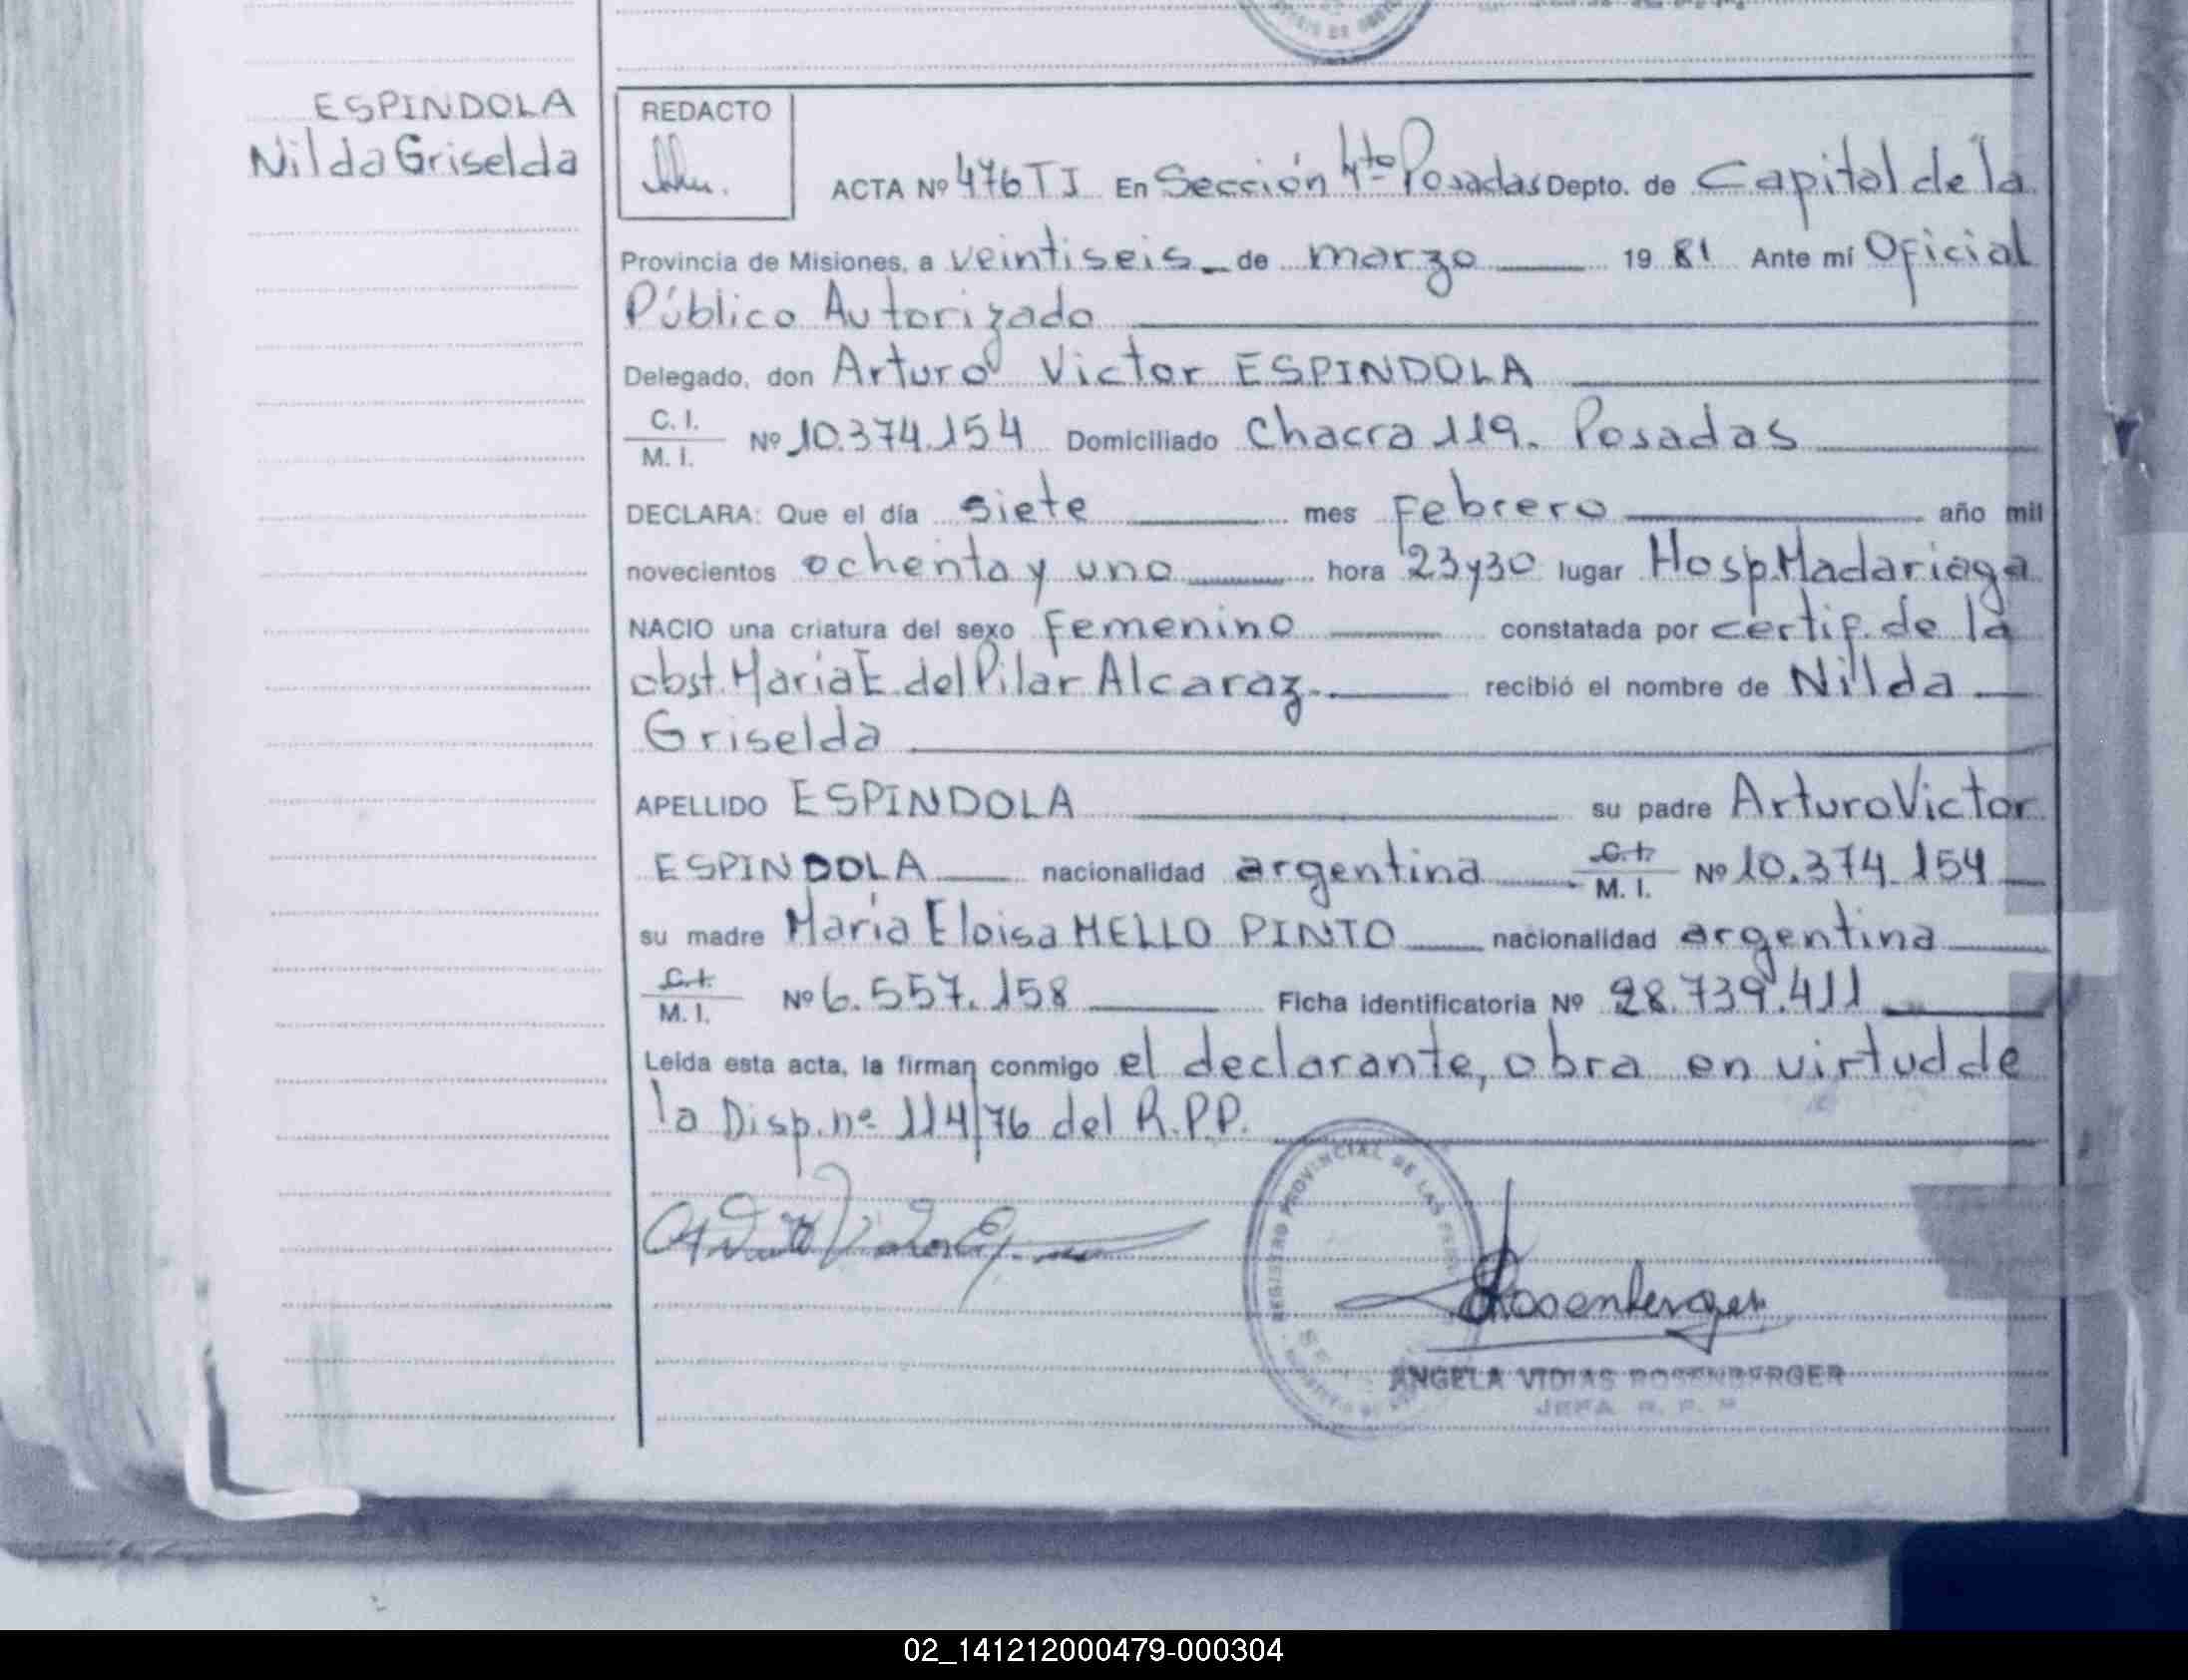 ESPINDOLA
Nilda Griselda
REDACTO
ACTA Nº 476 TI En Sección 4ta Posadas Depto. de Capital de la
Provincia de Misiones, a veintiseis de marzo 19 81 Ante mí Oficial
Público Autorizado
Delegado, don Arturo Victor ESPINDOLA
C. I.
M. I.
Nº 10.374.154 Domiciliado Chacra 119. Posadas
DECLARA: Que el día siete mes Febrero año mil
novecientos ochenta y uno hora 23y30 lugar Hosp. Madariaga
NACIO una criatura del sexo Femenino constatada por certif. de la
obst. Maria E. del Pilar Alcaraz. recibió el nombre de Nilda
Griselda
APELLIDO ESPINDOLA su padre Arturo Victor
ESPINDOLA nacionalidad argentina C. I. M. I. Nº 10.374.154
su madre Maria Eloisa MELLO PINTO nacionalidad argentina
C. I.
M. I.
Nº 6.557.158 Ficha identificatoria Nº 28.739.411
Leida esta acta, la firman conmigo el declarante, obra en virtud de
la Disp. nº 114/76 del R.P.P.
REGISTRO PROVINCIAL DE LAS
Rosenberger
ANGELA VIDIAS ROSENBERGER
JEFA R. P. P
02_141212000479-000304